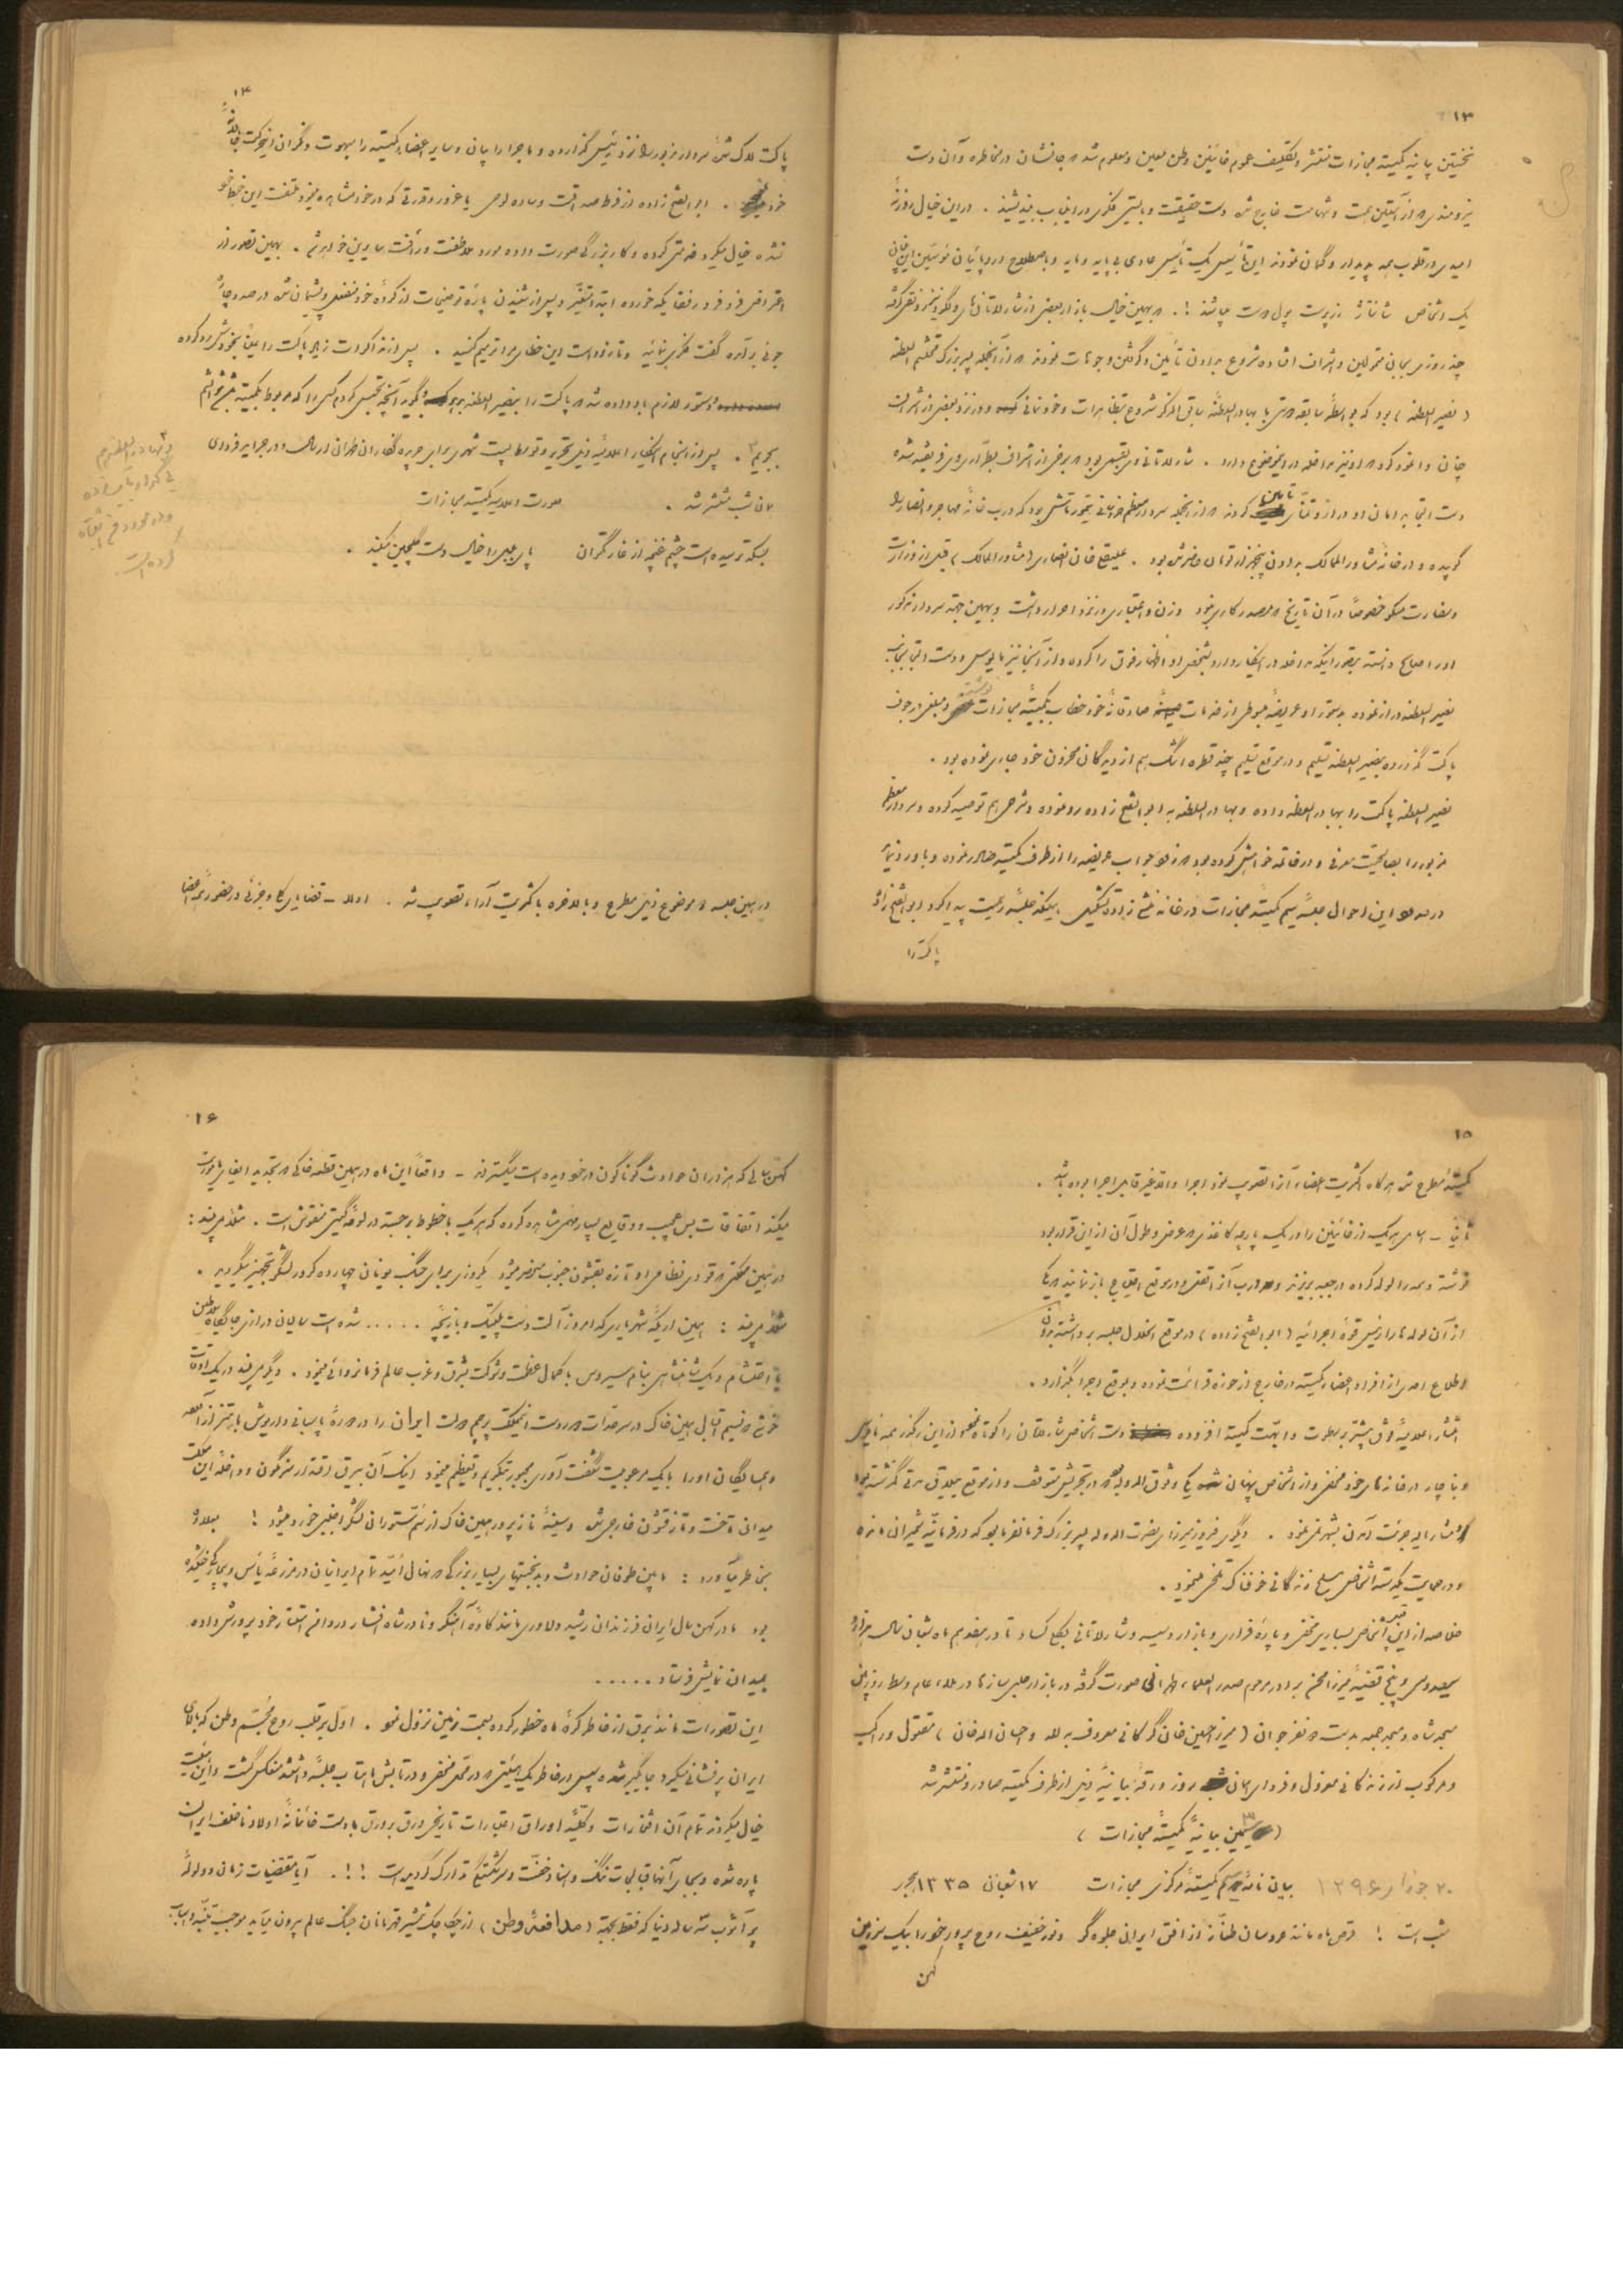 ۱۳
نخستین بیانیه کمیته مجازات منتشر و تکلیف عموم خائنین وطن معین و معلوم شد که جانشان در مخاطره و آن دست
نیرومندی که از آستین همت و شهامت خارج شده دست حقیقت و بایستی فکری در این باب بیندیشند . در این خیال روزنهٔ
امیدی در قلوب همه پدیدار و گمان نمودند این تأسیس یک تأسیس عادی بی پایه و مایه و باصطلاح اروپائیان مؤسسین این
یک اشخاص شانتاژ زن پست پول پرست میباشند ! . به همین خیال بازار بعضی از شارلاتان‌های
چند روزی بجان متمولین و اشراف افتاده شروع بدادن تأمین و گرفتن وجوهات نمودند که از آنجمله پسر بزرگ محتشم السلطنه
( نصیر السلطنه ) بود که بواسطه سابقه که با بهادر السلطنه شروع بتظاهرات و خودنمائی و در نزد بعضی از اشراف
چنان وانمود کرد که او نیز مداخله در این موضوع دارد . شارلاتانی بود که برخی از اشراف فریفته شده
دست التجا بدامان او دراز و تمنای تأمین کردند که از آنجمله سردار معظم خراسانی تیمورتاش بود که درب خانهٔ مهاجر و انصار را
کوبیده و در خانهٔ مشاور الممالک بدادن پنجهزار تومان حاضر شده بود . علیقلی خان انصاری ( مشاور الممالک ) قبل از وزارت
و سفارت مسکو خصوصاً در آن تاریخ که مصدر کاری نبود وزن و اعتباری در نزد احرار داشت و بهمین جهة سردار مذکور
او را صالح دانسته بتصور اینکه مداخله در اینکار دارد بشخص او اظهار فوق را کرده و از آنجا نیز مأیوس و دست التجا بجانب
نصیر السلطنه دراز نموده بدستور او عریضهٔ مبنی از خدمات صادقانهٔ خود خطاب بکمیتهٔ مجازات نوشته و مبلغی در جوف
پاکت گذارده بنصیر السلطنه تسلیم و در موقع تسلیم چند قطره اشک هم از دیدگان محزون خود جاری نموده بود .
نصیر السلطنه پاکت را ببهادر السلطنه داده و بهادر السلطنه به ابوالفتح زاده رد نموده و شرحی هم توصیه کرده و سردار معظم
مزبور را بصالحیت معرفی و در خاتمه خواهش کرده بود که زود جواب عریضه را از طرف کمیته صادر نموده و باو رد نمایند
در این احوال جلسهٔ سیم کمیتهٔ مجازات در خانه منشی زاده تشکیل ، همینکه جلسه رسمیت پیدا کرد ابوالفتح زاده
پاکت را
۱۴
پاکت لاک شده سردار مزبور را نزد رئیس گذارده و ماجرا را بیان و سایر اعضاء کمیته را مبهوت و نگران این حرکت جاهلانه
خود . ابوالفتح زاده از فرط صداقت و ساده لوحی یا غرور و قدرتی که در خود مشاهده مینمود ملتفت این خبط خود
نشده خیال میکرد خدمتی کرده و کار بزرگی صورت داده مورد ملاطفت و رأفت سایرین خواهد شد . بهمین تصور از
اعتراض فرد فرد رفقا یکه خورده ابتدا متغیر و پس از شنیدن پارهٔ توضیحات از کردهٔ خود منفعل و پشیمان شده درصدد چارهٔ
جوئی برآمده گفت فکری بنمائید و تا زود است این خطای مرا ترمیم کنید . پس از مذاکرات زیاد پاکت را عیناً بخودش رد کرده
دستور لازم باو داده شد که پاکت را بنصیر السلطنه و بگوید آنچه تجسس کردم کسی را که مربوط بکمیته مجازات باشد
بجویم ۳ . پس از انجام اینکار اعلامیهٔ ذیل تحریر و توسط پست شهری برای جریده نگاران طهران ارسال و در جراید فردای
همان شب منتشر شد . صورت اعلامیه کمیته مجازات
بسکه ترسیده است چشم غنچه از غارتگران پای بلبل را خیال دست گلچین میکند .
در همین جلسه موضوع ذیل مطرح و بالاخره باکثریت آراء تصویب شد . اولاً – قضایای کلی و جزئی در حضور اعضاء
۱۵
کمیته مطرح شده هرگاه اکثریت اعضاء آنرا تصویب نمود اجرا والا غیر قابل اجرا بوده باشد .
ثانیاً – اسامی هر یک از خائنین را در یک پارچه کاغذی که عرض و طول آن از این قرار بود
نوشته و همه را لوله کرده در جعبه بریزند و درب آنرا قفل و در موقع احتیاج باز نمایند که یکی
از آن لوله‌ها را رئیس قوهٔ اجرائیه ( ابوالفتح زاده ) در موقع انحلال جلسه برداشته بدون
اطلاع احدی از افراد اعضاء کمیته در خارج از حوزه قرائت نموده و بموقع اجرا بگذارد .
انتشار اعلامیهٔ فوق بیشتر بر سطوت و ابهت کمیته افزوده دست اشخاص شارلاتان را کوتاه از این رهگذر همه مأیوس
و بناچار در خانه‌های خود مخفی و از اشخاص پنهان یکی وثوق الدوله بود که در تجریش متوقف و از موقع ییلاقی مدتی گذشته بود
مشارالیه جرئت آمدن بشهر نمینمود . دیگری فیروز میرزای نصرت الدوله پسر بزرگ فرمانفرما بود که در فرمانیه شمیران مانده
و در حمایت یکدسته اشخاص مسلح زندگانی خوفناک تلخی مینمود .
خلاصه از این قبیل اشخاص بسیاری مخفی و پارهٔ فراری و بازار دسیسه و شارلاتانی بکلی کساد تا در هفدهم ماه شعبان سال هزار و
سیصد و سی و پنج قضیهٔ میرزا محسن برادر مرحوم صدر العلماء طهرانی صورت گرفته در بازار حلبی سازها در ملاء عام وسط روز بین
مسجد شاه و مسجد جمعه بدست دو نفر جوان ( میرزا حسین خان گرگانی معروف به لله و احسان الله خان ) مقتول و راکب
و مرکوب از زندگانی معزول و فردای همان روز ورقهٔ بیانیهٔ ذیل از طرف کمیته صادر و منتشر شد
( سیمین بیانیهٔ کمیتهٔ مجازات )
بیان نامهٔ سیم کمیتهٔ مرکزی مجازات ۱۷ شعبان ۱۳۳۵ ۲۰ جوزای ۱۲۹۶
شب است ! قرص ماه مانند عروسان طناز از افق ایرانی جلوه‌گر و نور خفیف روح پرور خود را بیک سرزمین
کهن
۱۶
کهن سالی که هزاران حوادث گوناگون در خود دیده است میگستراند – واقعاً این ماه در همین قطعه خاکی که تجدید
میکند اتفاقات بس عجیب و وقایع بسیار مهمی مشاهده کرده که هر یک با خطوط برجسته در لوحهٔ گیتی منقوش است . مثلاً میبیند :
در همین مملکتی که قوای نظامی او تازه بقشون جنوب منحصر میشود یکروزی برای جنگ یونان چهارده کرور لشگر تجهیز میگردید .
مثلاً میبیند : همین اریکهٔ شهریاری که امروز آلت دست پلتیک و بازیچه . . . . . شده است سالیان درازی جایگاه سلاطین
با احتشام و یک شاهنشاهی بنام سیروس با کمال عظمت و شوکت بشرق و غرب عالم فرمانروائی مینمود . دیگر میبیند در یک اوقات
خوشی که نسیم اقبال همین خاک در سرحدات دور دست این مملکت پرچم دولت ایران را در دورهٔ پاسبانی داریوش باهتزاز آورده
و همسایگان او را با یک مرعوبیت شگفت آوری مجبور بتکریم و تعظیم مینمود اینک آن بیرق اقتدار سرنگون و داخلهٔ این مملکت
میدان تاخت و تاز قشون خارجی شده و سینهٔ ناز پرور همین خاک از سم ستوران لشگر اجنبی خورد میشود ! بعلاوه
بخاطر میآورد : مابین طوفان حوادث و بدبختیهای بسیار بزرگی که نهال امید تمام ایرانیان در مزرعهٔ یأس و بیچارگی خشکیده
بود مادر کهن سال ایران فرزندان رشید و دلاوری مانند کاوهٔ آهنگر و نادر شاه افشار در دامن استقلال خود پرورش داده
بمیدان نمایش فرستاد . . . . . .
این تصورات مانند برق از خاطر کرهٔ ماه خطور کرده بسمت زمین نزول نمود . اول بر قلب روح مجسم وطن که بالای
ایران پرفشانی میکرد جایگیر شده پس در خاطر یک هیئتی که در محلی مخفی و در تابش ماهتاب جلسهٔ داشتند منعکس گشت و این هیئت
خیال میکردند تمام آن افتخارات و کلیهٔ اوراق اعتبارات تاریخی ورق بورق با دست خائنانهٔ اولاد ناخلف ایران
پاره شده و بجای آنها قبالجات ننگ و اسناد خفت و سرشکستگی تدارک گردیده است !!! . آیا مقتضیات زمان و ولولهٔ
پر آشوب سه ساله دنیا که فقط بجهة ( مدافعهٔ وطن ) از چکاچک شمشیر قهرمانان جنگ عالم بیرون میآید موجب تنبه و اسباب